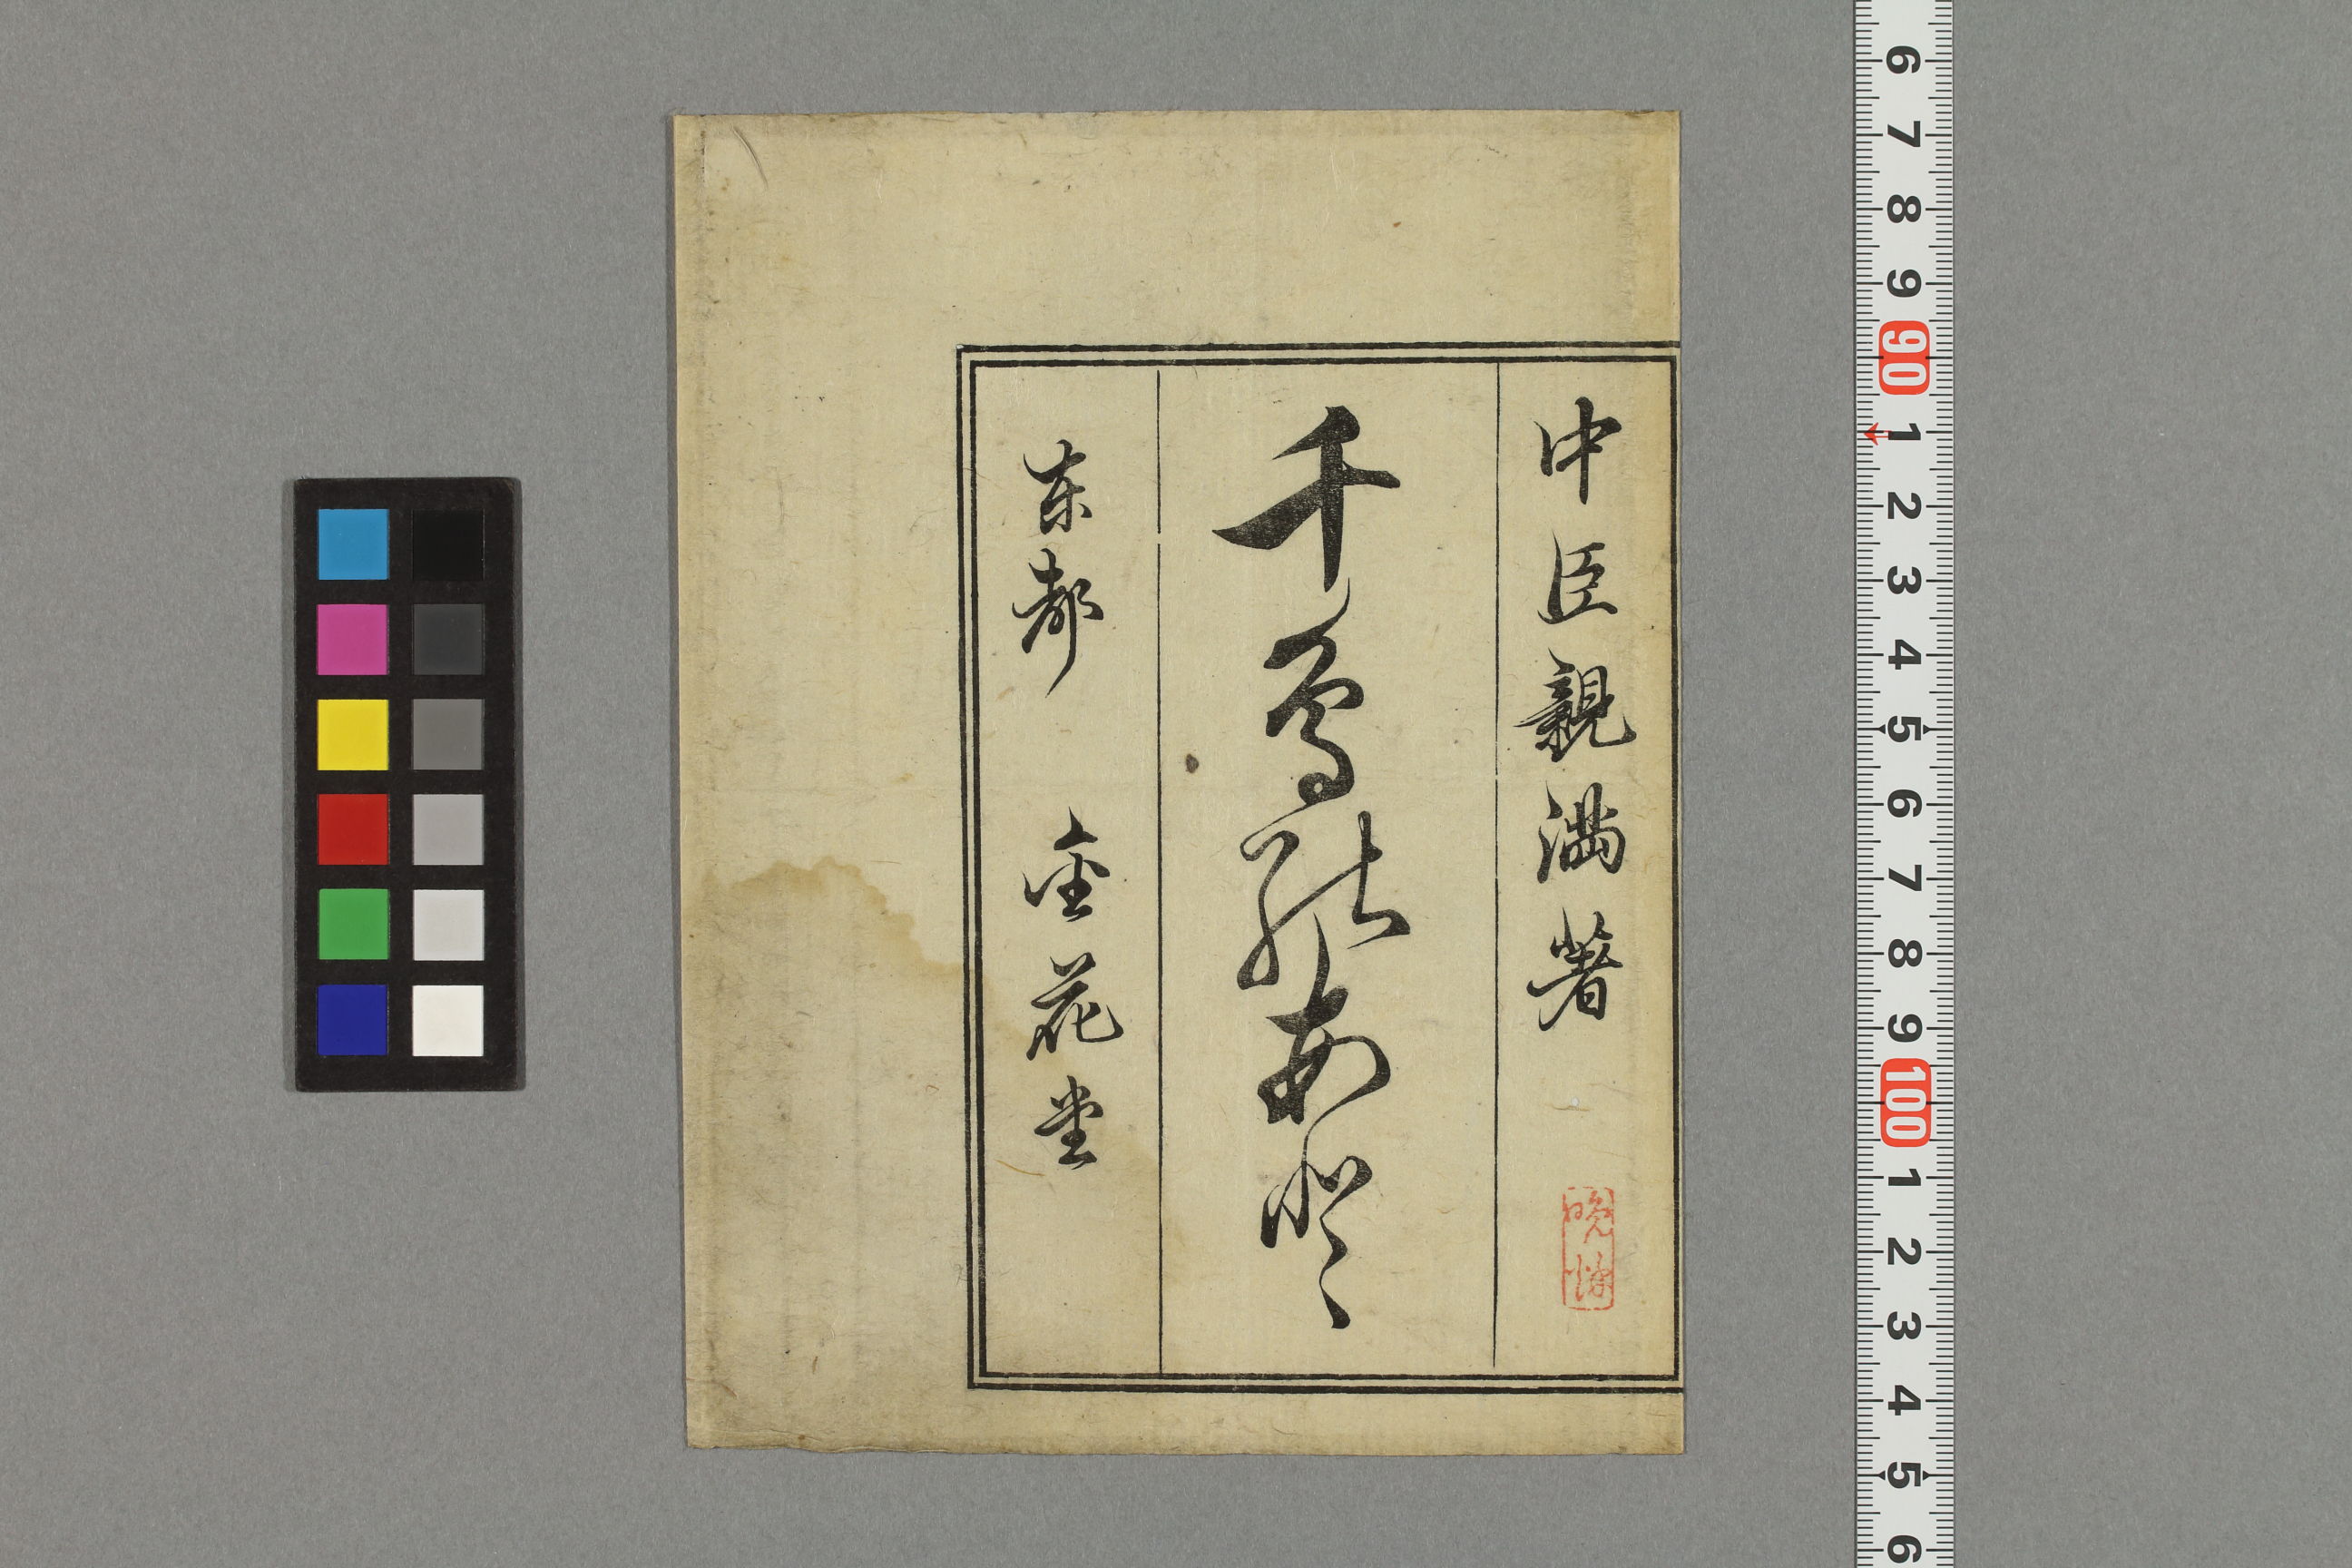 中臣親満著
千鳥能安登
東都 金花堂
6 7 8 9 90 1 2 3 4 5 6 7 8 9 100 1 2 3 4 5 6